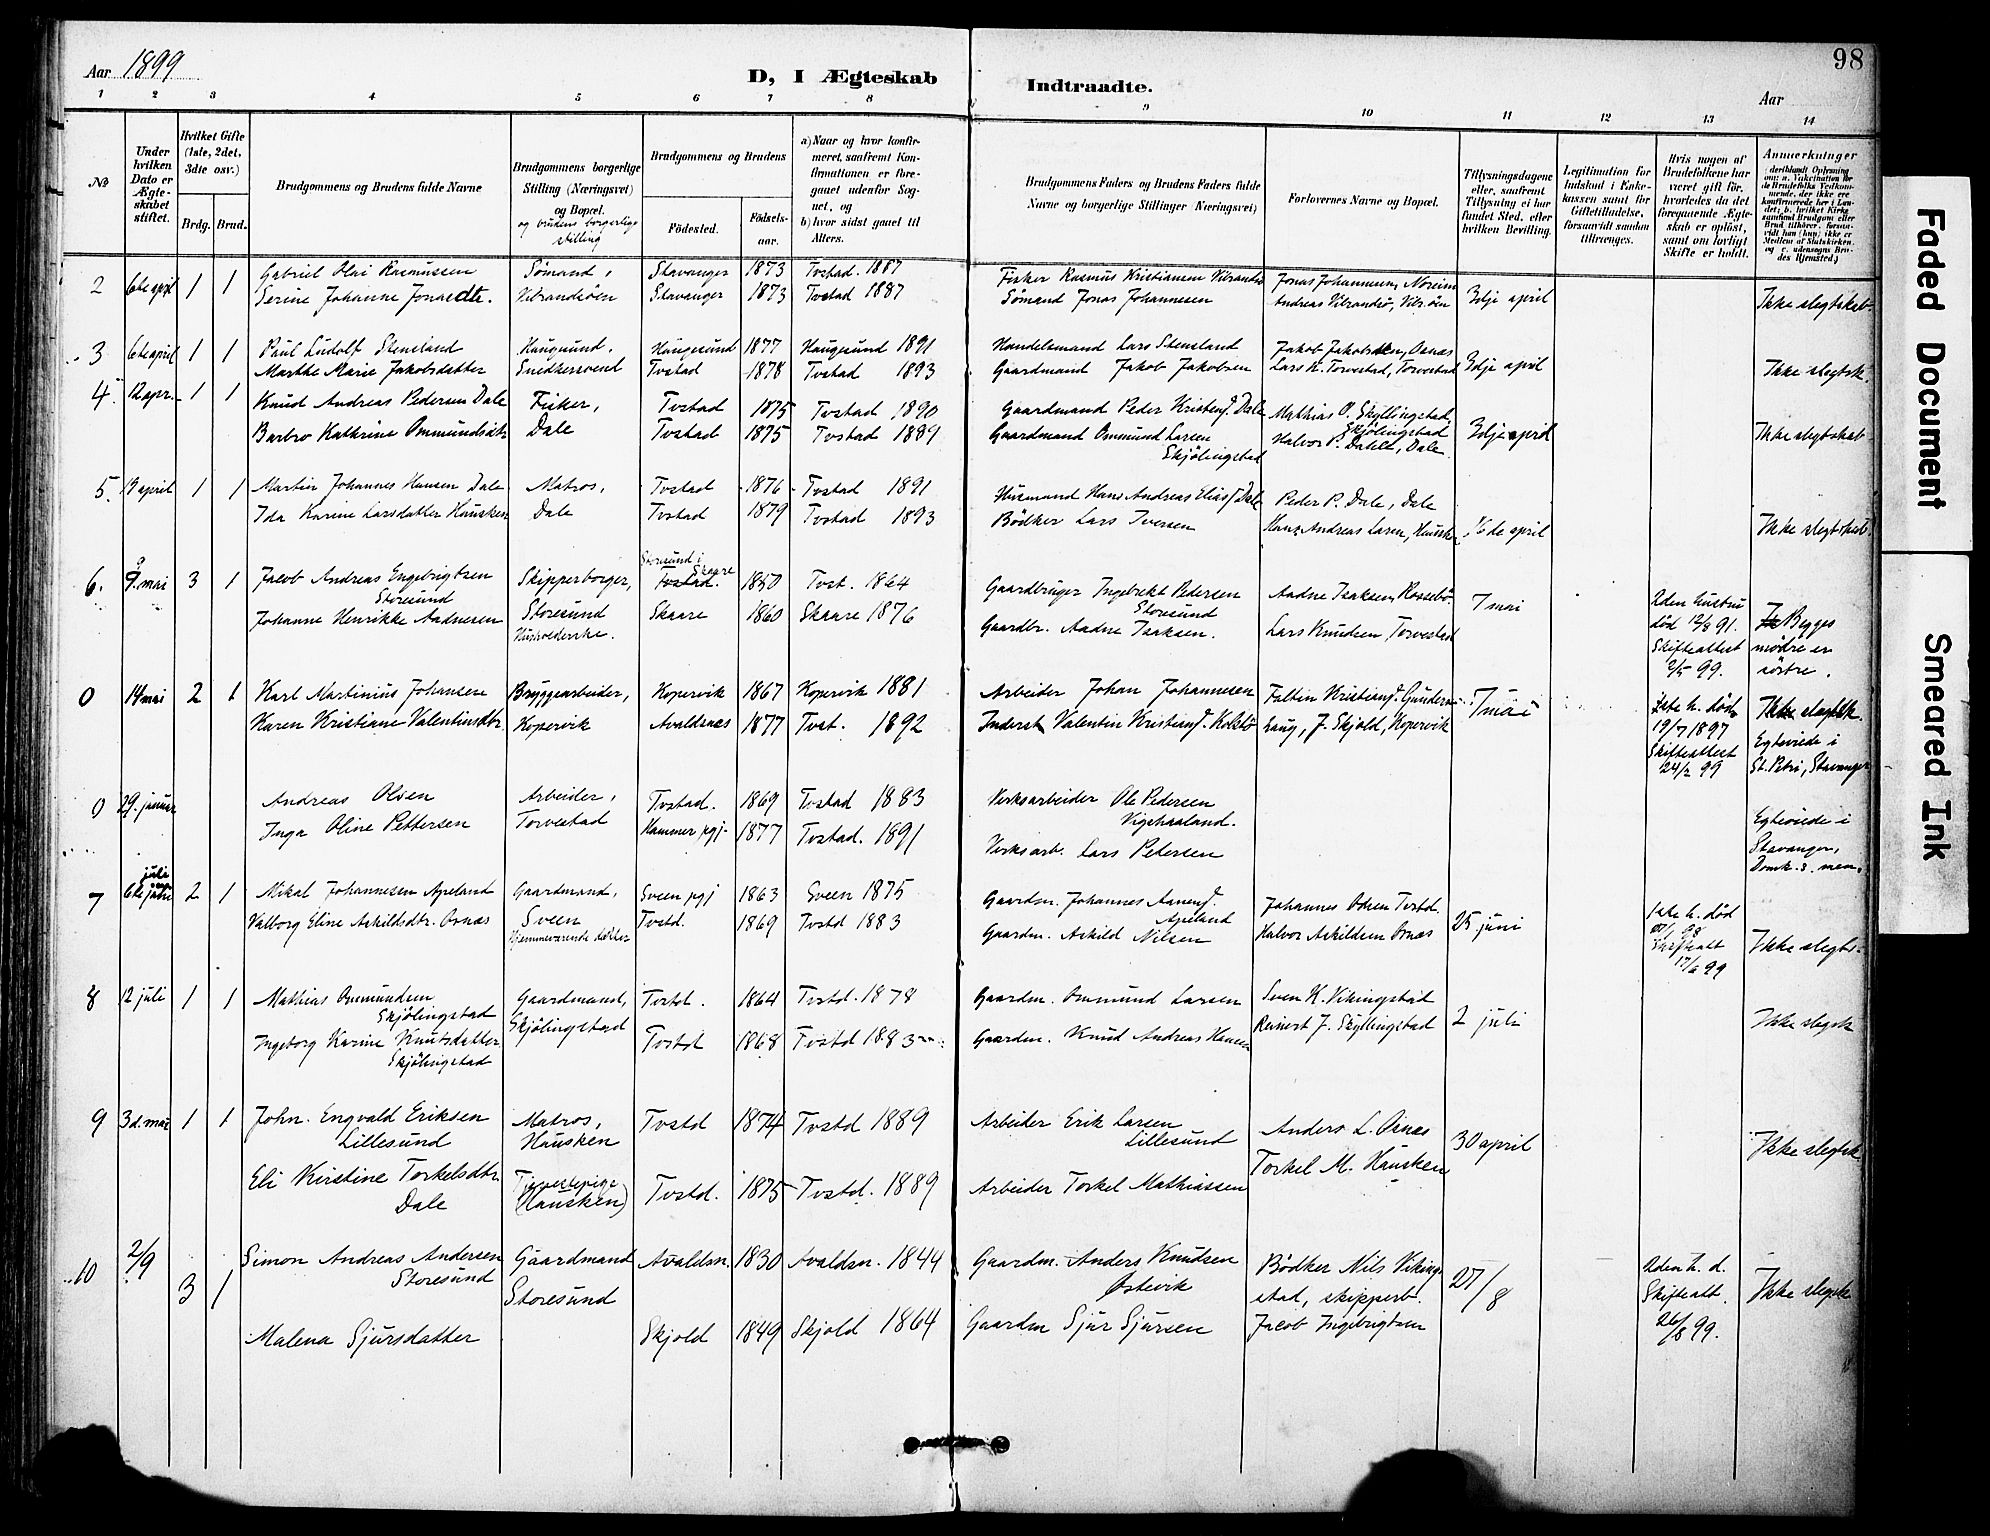 98
Aar 1899
D, I Ægteskab
Indtraadte.
Aar
1 2 3 4 5 6 7 8 9 10 11 12 13 14
No
Under hvilken Dato er Ægteskabet stiftet.
Hvilket Gifte (1ste, 2det, 3dte osv.)
Brdg. Brud.
Brudgommens og Brudens fulde Navne
Brudgommens borgerlige Stilling (Næringsvei) og Bopæl.
og brudens borgerlige stilling
Brudgommens og Brudens
Fødested.
Fødselsaar.
a) Naar og hvor konfirmeret, saafremt Konfirmationen er foregaaet udenfor Sognet, og
b) hvor sidst gaaet til Alters.
Brudgommens Faders og Brudens Faders fulde Navne og borgerlige Stillinger (Næringsvei)
Forlovernes Navne og Bopæl.
Tillysningsdagene eller, saafremt Tillysning ei har fundet Sted, efter hvilken Bevilling.
Legitimation for Indskud i Enkekassen samt for Giftetilladelse, forsaavidt saadan tiltrænges.
Hvis nogen af Brudefolkene har været gift før, hvorledes da det foregaaende Ægteskab er opløst, samt om lovligt Skifte er holdt.
Anmærkninger
2 6te april 1 1 Gabriel Olai Rasmussen Sømand, Stavanger 1873 Tvstad. 1887 Fisker Rasmus Kristiansen Vibrandsø Jonas Johannesen, Noreim
Serine Johanne Jonasdtr. Vibrandsøen Stavanger 1873 Tvstad 1887 Sømand Jonas Johannesen Andreas Vibrandsø, Vibr.øen 3dje april Ikke slegtskab
3 6te april 1 1 Paul Ludolf Stensland Haugesund, Haugesund 1877 Haugesund 1891 Handelsmand Lars Stensland Jakob Jakobsen, Osnæs
Marthe Marie Jakobsdatter Snedkersvend Tvstad 1878 Tvstad 1893 Gaardmand Jakob Jakobsen Lars K. Torvestad, Torvestad 3dje april Ikke slegtsk.
4 12 apr. 1 1 Knud Andreas Pedersen Dale Fisker, Tvstad 1875 Tvstad 1890 Gaardmand Peder Kristens. Dale Mathias O. Skyllingstad, Skjølingstad
Barbro Kathrine Ommundsdtr Dale Tvstad 1875 Tvstad 1889 Gaardmand Ommund Larsen Skjølingstad Halvor P. Dahle, Dale 3dje april Ikke slegtskab
5. 19 april 1 1 Martin Johannes Hansen Dale Matros, Tvstad 1876 Tvstad 1891 Husmand Hans Andreas Elias. Dale Peder P. Dale, Dale
Ida Karine Larsdatter Hausken Dale Tvstad 1879 Tvstad 1893 Bødker Lars Iversen Hans Andreas Larsen, Hausken 16de april Ikke slegtskab
6. 9. mai 3 1 Jacob Andreas Engebrigtsen Storesund Skipperborger, Storesund i Skaare Tvstad. 1850 Tvst. 1864 Gaardbruger Ingebrikt Pedersen Storesund Aadne Isaksen, Rossebø.
Johanne Henrikke Aadnesen Storesund Husholderske. Skaare 1860 Skaare 1876 Gaardbr. Aadne Isaksen. Lars Knudsen, Torvestad 7 mai
2den hustru død 12/8 91. Skifteattest 2/5 99.
Begges mødre er søstre.
0 14 mai 2 1 Karl Martinius Johansen Bryggearbeider, Kopervik 1867 Kopervik 1881 Arbeider Johan Johannesen Faltin Kristians. Gunders-
Karen Kristiane Valentinsdtr. Kopervik Avaldsnæs 1877 Tvst. 1892 Inderst Valentin Kristians. Kolstø haug, J. Skjold, Kopervik 7 mai
1ste h. død 19/7 1897 Skifteattest 24/2 99
Ikke slegtsk. Egteviede i St. Petri, Stavanger
0 29. januar Andreas Olsen Arbeider, Tvstad. 1869 Tvstad 1883 Verksarbeider Ole Pedersen Vigshaaland.
Inga Oline Pettersen Torvestad Hammer pgj. 1877 Tvstad. 1891 Verksarb. Lars Pedersen
Egteviede i Stavanger, Domk. s. men.
7 6te juli 2 1 Mikal Johannesen Apeland Gaardmand, Sveen pgj 1863 Sveen 1875 Gaardm. Johannes Aanens. Apeland Johannes Odsen Tvstd.
Valborg Eline Askildsdtr. Osnæs Sveen Hjemmeværende datter Tvstd. 1869 Tvstd 1883 Gaardm. Askild Nilsen Halvor Askildsen Osnæs 25 juni
1ste h. død 98 Skifteatt 17/6 99
Ikke slegts.
8 12 juli 1 1 Mathias Ommundsen Skjølingstad Gaardmand, Skjølingstad Tvstd. 1864 Tvstd. 1878 Gaardm. Ommund Larsen Sven K. Vikingstad
Ingeborg Karine Knutsdatter Skjølingstad Tvstd 1868 Tvstd 1883 Gaardm. Knud Andreas Hansen Reinert J. Skyllingstad 2 juli Ikke slegtsk
9 3d. mai 1 1 John. Engvald Eriksen Lillesund Matros, Hausken Tvstd 1874 Tvstd 1889 Arbeider Erik Larsen Lillesund Anders L. Osnæs
Eli Kirstine Torkelsdtr. Dale Tjenestepige (Hausken) Tvstd. 1875 Tvstd. 1889 Arbeider Torkel Mathiassen Torkel M. Hausken 30 april Ikke slegtsk
10 2/9 3 1 Simon Andreas Andersen Storesund Gaardmand Storesund Avaldsn. 1830 Avaldsn. 1844 Gaardm. Anders Knudsen Østevik Bødker Nils Vikingstad, skipperb.
Malena Sjursdatter Skjold 1849 Skjold 1864 Gaardm Sjur Sjursen Jacob Ingebrigtsen 27/8
2den h. d. Skifteatt. 26/8 99.
Ikke slegtsk
Faded Document
Smeared Ink